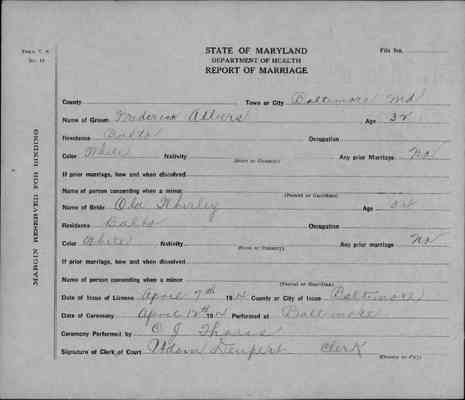 STATE OF MARYLAND
DEPARTMENT OF HEALTH
REPORT OF MARRIAGE
Form V. S.
No. 18
File No.
MARGIN RESERVED FOR BINDING
County Town or City Baltimore Md
Name of Groom Frederick Albers Age 32
Residence Balto Occupation
Color White Nativity (State or Country) Any prior Marriage No
If prior marriage, how and when dissolved
Name of person consenting when a minor (Parent or Guardian)
Name of Bride Ola Whirley Age
Residence Balto Occupation
Color White Nativity (State or Country) Any prior marriage No
If prior marriage, how and when dissolved
Name of person consenting when a minor (Parent or Guardian)
Date of Issue of License April 7th 1914 County or City of Issue Baltimore
Date of Ceremony April 12th 1914 Performed at Baltimore
Ceremony Performed by C J
Signature of Clerk of Court Adam Deupert Clerk
(County or City)